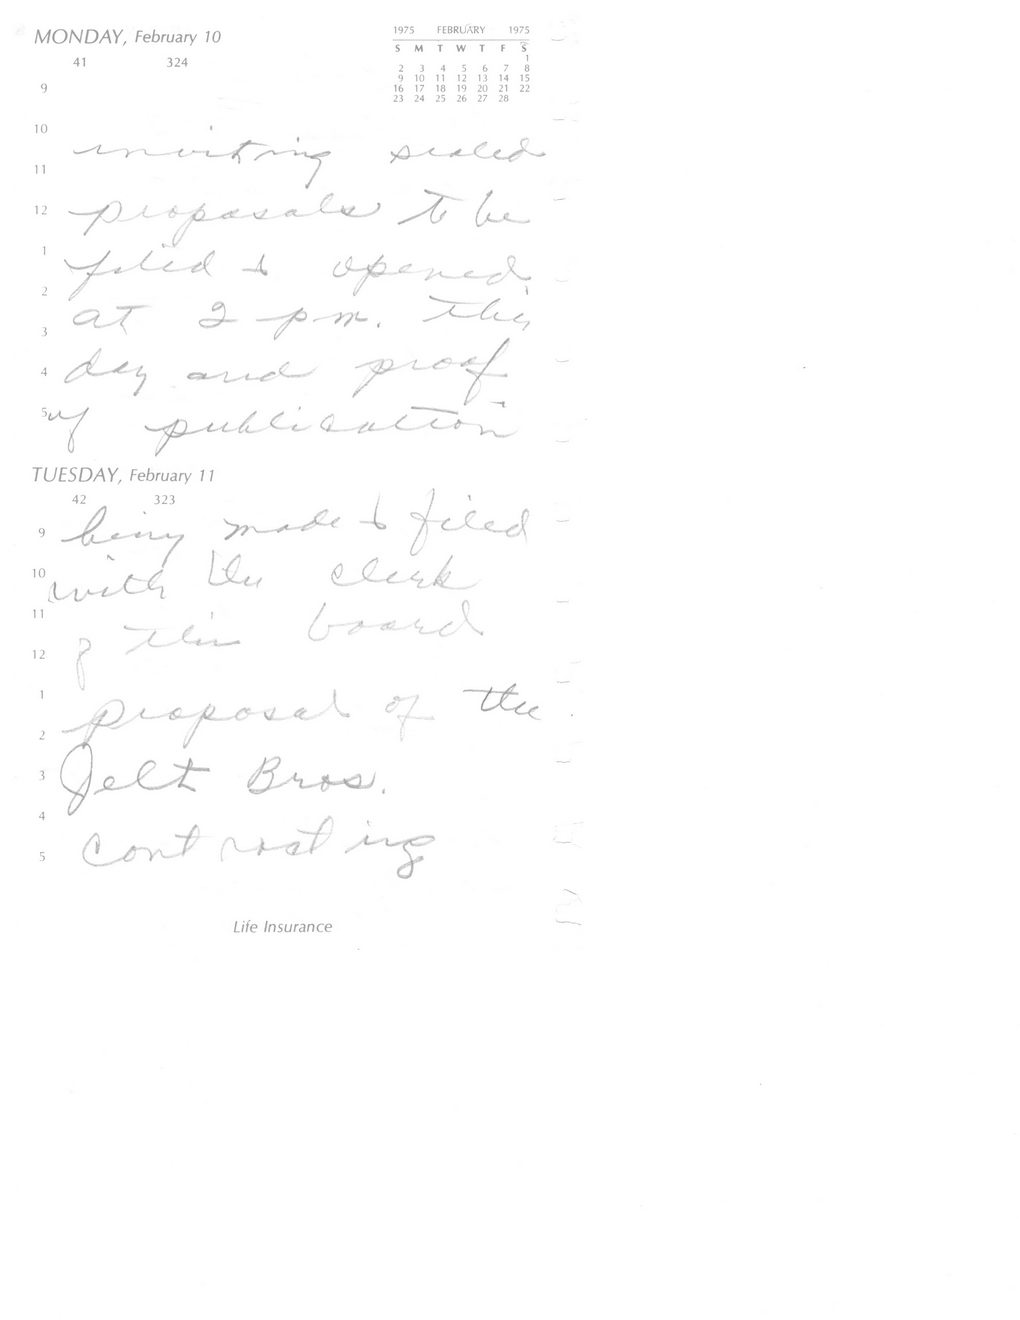 MONDAY, February 10
41 324
1975 FEBRUARY 1975
S M T W T F S
1
2 3 4 5 6 7 8
9 10 11 12 13 14 15
16 17 18 19 20 21 22
23 24 25 26 27 28
9
10
inviting sealed
11
12 proposals to be
1
filed & opened
2
at 2 p.m. this
3
4 day and proof
5 of publication
TUESDAY, February 11
42 323
9 being made & filed
10 with the clerk
11
of this board
12
1
proposal of the
2
3 Jelt Bros.
4
5 contracting
Life Insurance